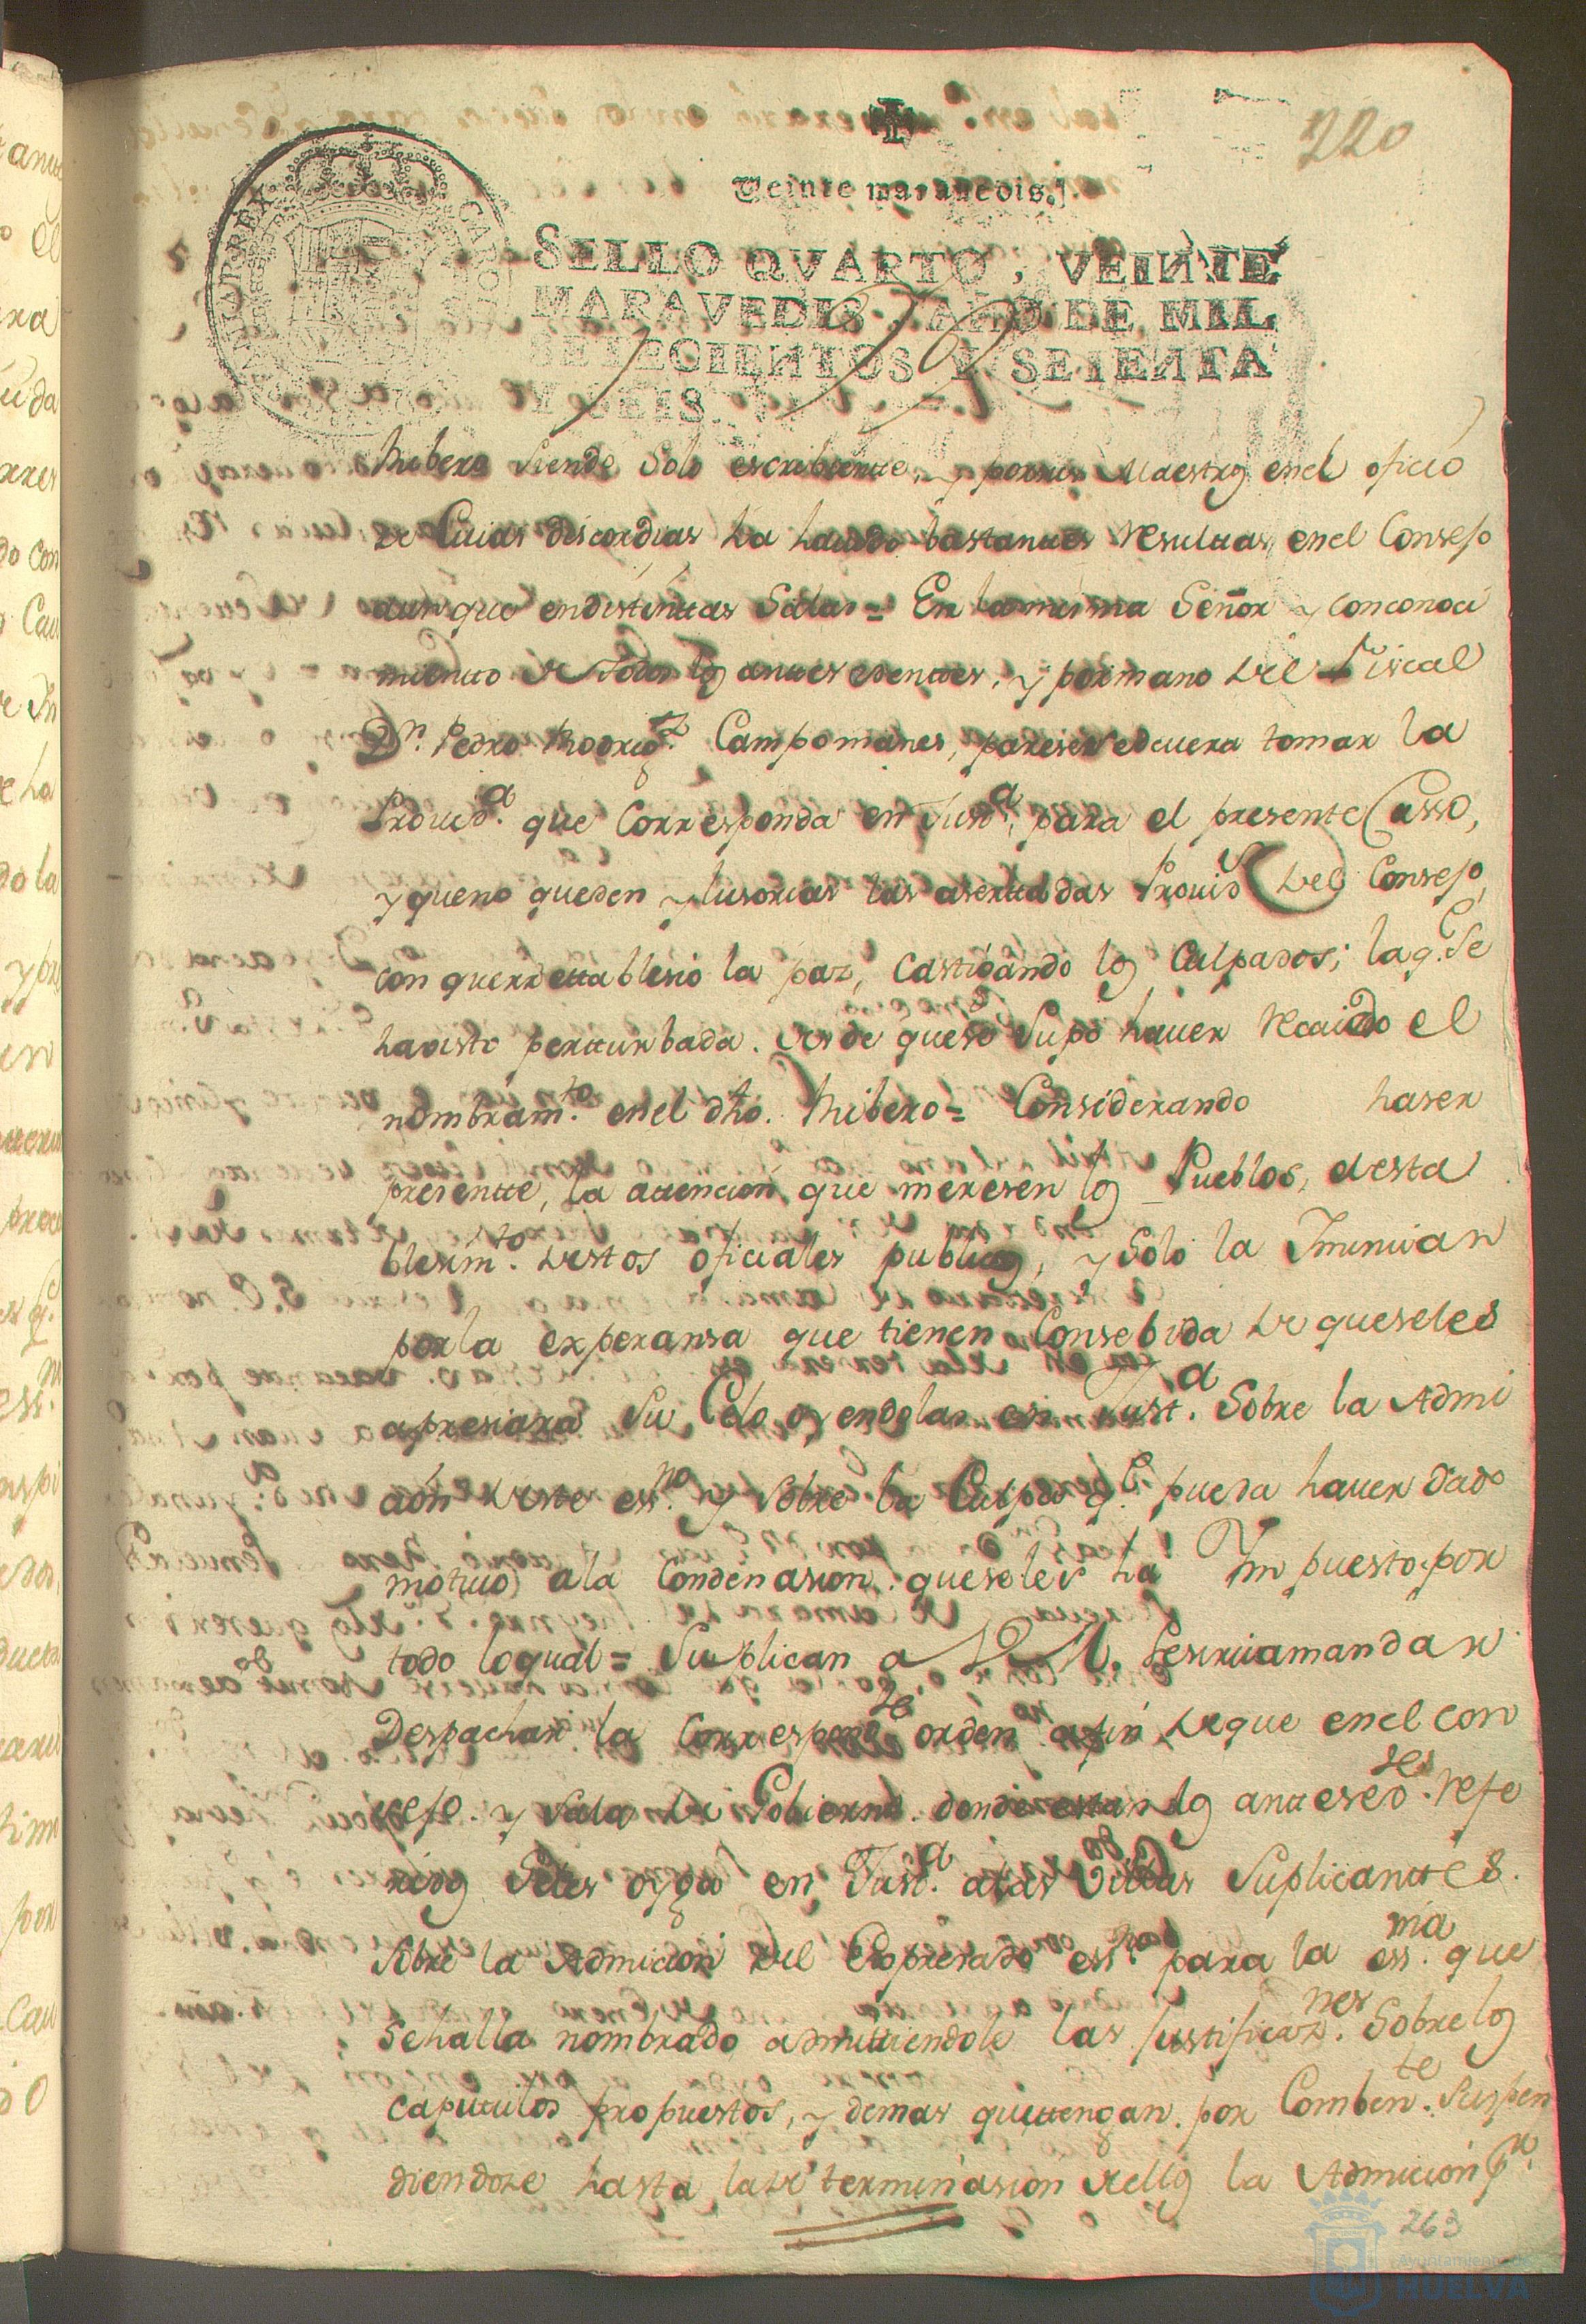 220
Veinte maravedis.
SELLO QVARTO, VEINTE
MARAVEDIS, AÑO DE MIL
SETECIENTOS Y SETENTA
Y SEIS.
CAROLUS HISPANIAR REX
Ribero siendo solo escribiente, y por sus Maestros en el oficio
de Cuias discordias ha hauido bastantes resultas en el Consejo
aunque en distinttas Salas = En la misma Señor y con conoci
miento de todos los anttesedentes, y por mano del Fiscal
Dn. Pedro Rodrigz. Campomanes, parese se deuera tomar la
Prouida. que Corresponda en Justa. para el presente Casso,
y que no queden ylusorias las aserttadas Prouids del Consejo,
con que rrettablesio la paz, castigando los Culpados; la q.e se
ha visto pertturbada desde que se supo hauer recaido el
nombramto. en el dho. Ribero = Considerando haser
presentte, la attencion que meresen los Pueblos, el esta
blesimto. destos oficiales publicos, y solo la Inunian
por la experansa que tienen Consebida de que se les
apresiara su Celo oyendolas en Justa. Sobre la Admi
cion deste essno. y sobre la Culpa q.e pueda hauer dado
motiuo a la Condenasion que se les ha Impuesto por
todo lo qual = Suplican a V. M. se sirua mandar
Despachar la Correspondte orden a fin de que en el con
sejo y Sala de Gobierno donde estan los anttesedtes. refe
ridos Seles oyga en Justa. a las Villas Suplicanttes.
Sobre la Admicion del Expresado essno. para la essnia. que
se halla nombrado admittiendole las justificaznes. Sobre los
capittulos propuestos, y demas que ttengan por Combente. Suspen
diendose hasta la determinasion dellos la Admicion pa.
263
Ayuntamiento de
HUELVA